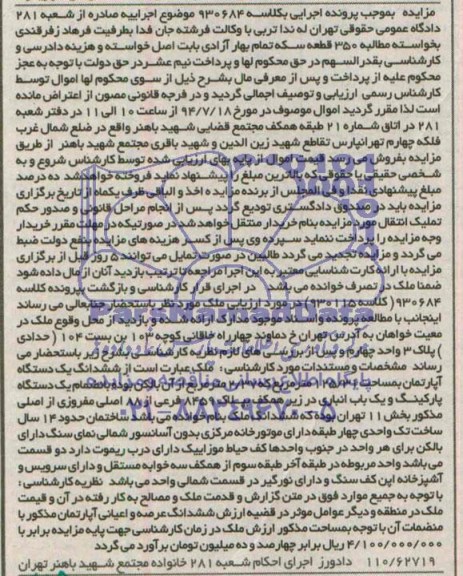 مزایده بموجب پرونده اجرایی بکلاسه ۹۳۰۶۸۴ موضوع اجراییه صادره از شعبه ۲۸۱
دادگاه عمومی حقوقی تهران له ندا تربی با وکالت فرشته جان فدا بطرفیت فرهاد زفرقندی
بخواسته مطالبه ۳۵۰ قطعه سکه تمام بهار آزادی بابت اصل خواسته و هزینه دادرسی و
کارشناسی بقدرالسهم در حق محکوم لها و پرداخت نیم عشر در حق دولت با توجه به عجز
محکوم علیه از پرداخت و پس از معرفی مال بشرح ذیل از سوی محکوم لها اموال توسط
کارشناس رسمی ارزیابی و توصیف اجمالی گردید و در فرجه قانونی مصون از اعتراض مانده
است لذا مقرر گردید اموال موصوف در مورخ ۹۴/۷/۱۸ از ساعت ۱۰ الی ۱۱ در دفتر شعبه
۲۸۱ در اتاق شماره ۲۱ طبقه همکف مجتمع قضایی شهید باهنر واقع در ضلع شمال غرب
فلکه چهارم تهرانپارس تقاطع شهید زین الدین و شهید باقری مجتمع شهید باهنر از طریق
مزایده بفروش می رسد قیمت اموال از پایه بهای ارزیابی شده توسط کارشناس شروع و به
شخصی حقیقی یا حقوقی که بالاترین مبلغ را پیشنهاد نماید فروخته خواهد شد ده درصد
مبلغ پیشنهادی نقدا و فی المجلس از برنده مزایده اخذ و الباقی ظرف یکماه از تاریخ برگزاری
مزایده باید در صندوق دادگستری تودیع گردد پس از انجام مراحل قانونی و صدور حکم
تملیک انتقال مورد مزایده بنام خریدار منتقل خواهد شد در صورتیکه در مهلت مقرر خریدار
وجه مزایده را پرداخت ننماید سپرده وی پس از کسر هزینه های مزایده بنفع دولت ضبط
می گردد و مزایده تجدید می گردد طالبین در صورت تمایل می توانند ۵ روز قبل از برگزاری
مزایده با ارائه کارت شناسایی معتبر به این اجرا مراجعه تا ترتیب بازدید آنان از مال داده شود
ضمنا ملک در تصرف خوانده می باشد در اجرای قرار کارشناسی و بازگشت پرونده کلاسه
۹۳۰۶۸۴ (کلاسه ۹۳۰۱۱۵) در مورد ارزیابی ملک مورد نظر باستحضار جنابعالی می رساند
اینجانب با مطالعه پرونده و اسناد موجود مدارک ارائه شده و بازدید از محل وقوع ملک در
معیت خواهان به آدرس تهران خ دماوند چهارراه خاقانی کوچه ۱۰۳ بن بست ۱۰۴ (حدادی
) پلاک ۳ واحد چهارم و پس از بررسی های لازم نظریه کارشناسی بشرح زیر باستحضار می
رساند مشخصات و مستندات مورد کارشناسی: ملک عبارت است از ششدانگ یک دستگاه
آپارتمان بمساحت مترمربع که مترمربع آن بالکن بوده با انضمام یک دستگاه
پارکینگ و یک باب انباری در زیر همکف پلاک ۸۴۵۹ فرعی از ۸۸ اصلی مفروزی از اصلی
مذکور بخش ۱۱ تهران بوده که ششدانگ ملک بنام خوانده می باشد ساختمان حدود ۱۴ سال
ساخت تک واحدی چهار طبقه دارای موتورخانه مرکزی بدون آسانسور شمالی نمای سنگ دارای
بالکن برای هر واحد در جنوب واحدها کف حیاط موزاییک دارای درب ریموت دارد دو قسمت
می باشد واحد مربوطه در طبقه آخر طبقه سوم از همکف سه خوابه مستقل و دارای سرویس و
آشپزخانه اپن کف سنگ و دارای نورگیر در قسمت شمالی واحد می باشد نظریه کارشناسی:
با توجه به جمیع موارد فوق در متن گزارش و قدمت ملک و مصالح به کار رفته در آن و قیمت
ملک در منطقه و دیگر عوامل موثر در قضیه ارزش ششدانگ عرصه و اعیانی آپارتمان مذکور با
منضمات آن با توجه بمساحت مذکور ارزش ملک در زمان کارشناسی جهت پایه مزایده برابر با
۴/۱۰۰/۰۰۰/۰۰۰ ریال برابر چهارصد و ده میلیون تومان برآورد می گردد
۱۱۰/۶۲۷۱۹ دادورز اجرای احکام شعبه ۲۸۱ خانواده مجتمع شهید باهنر تهران